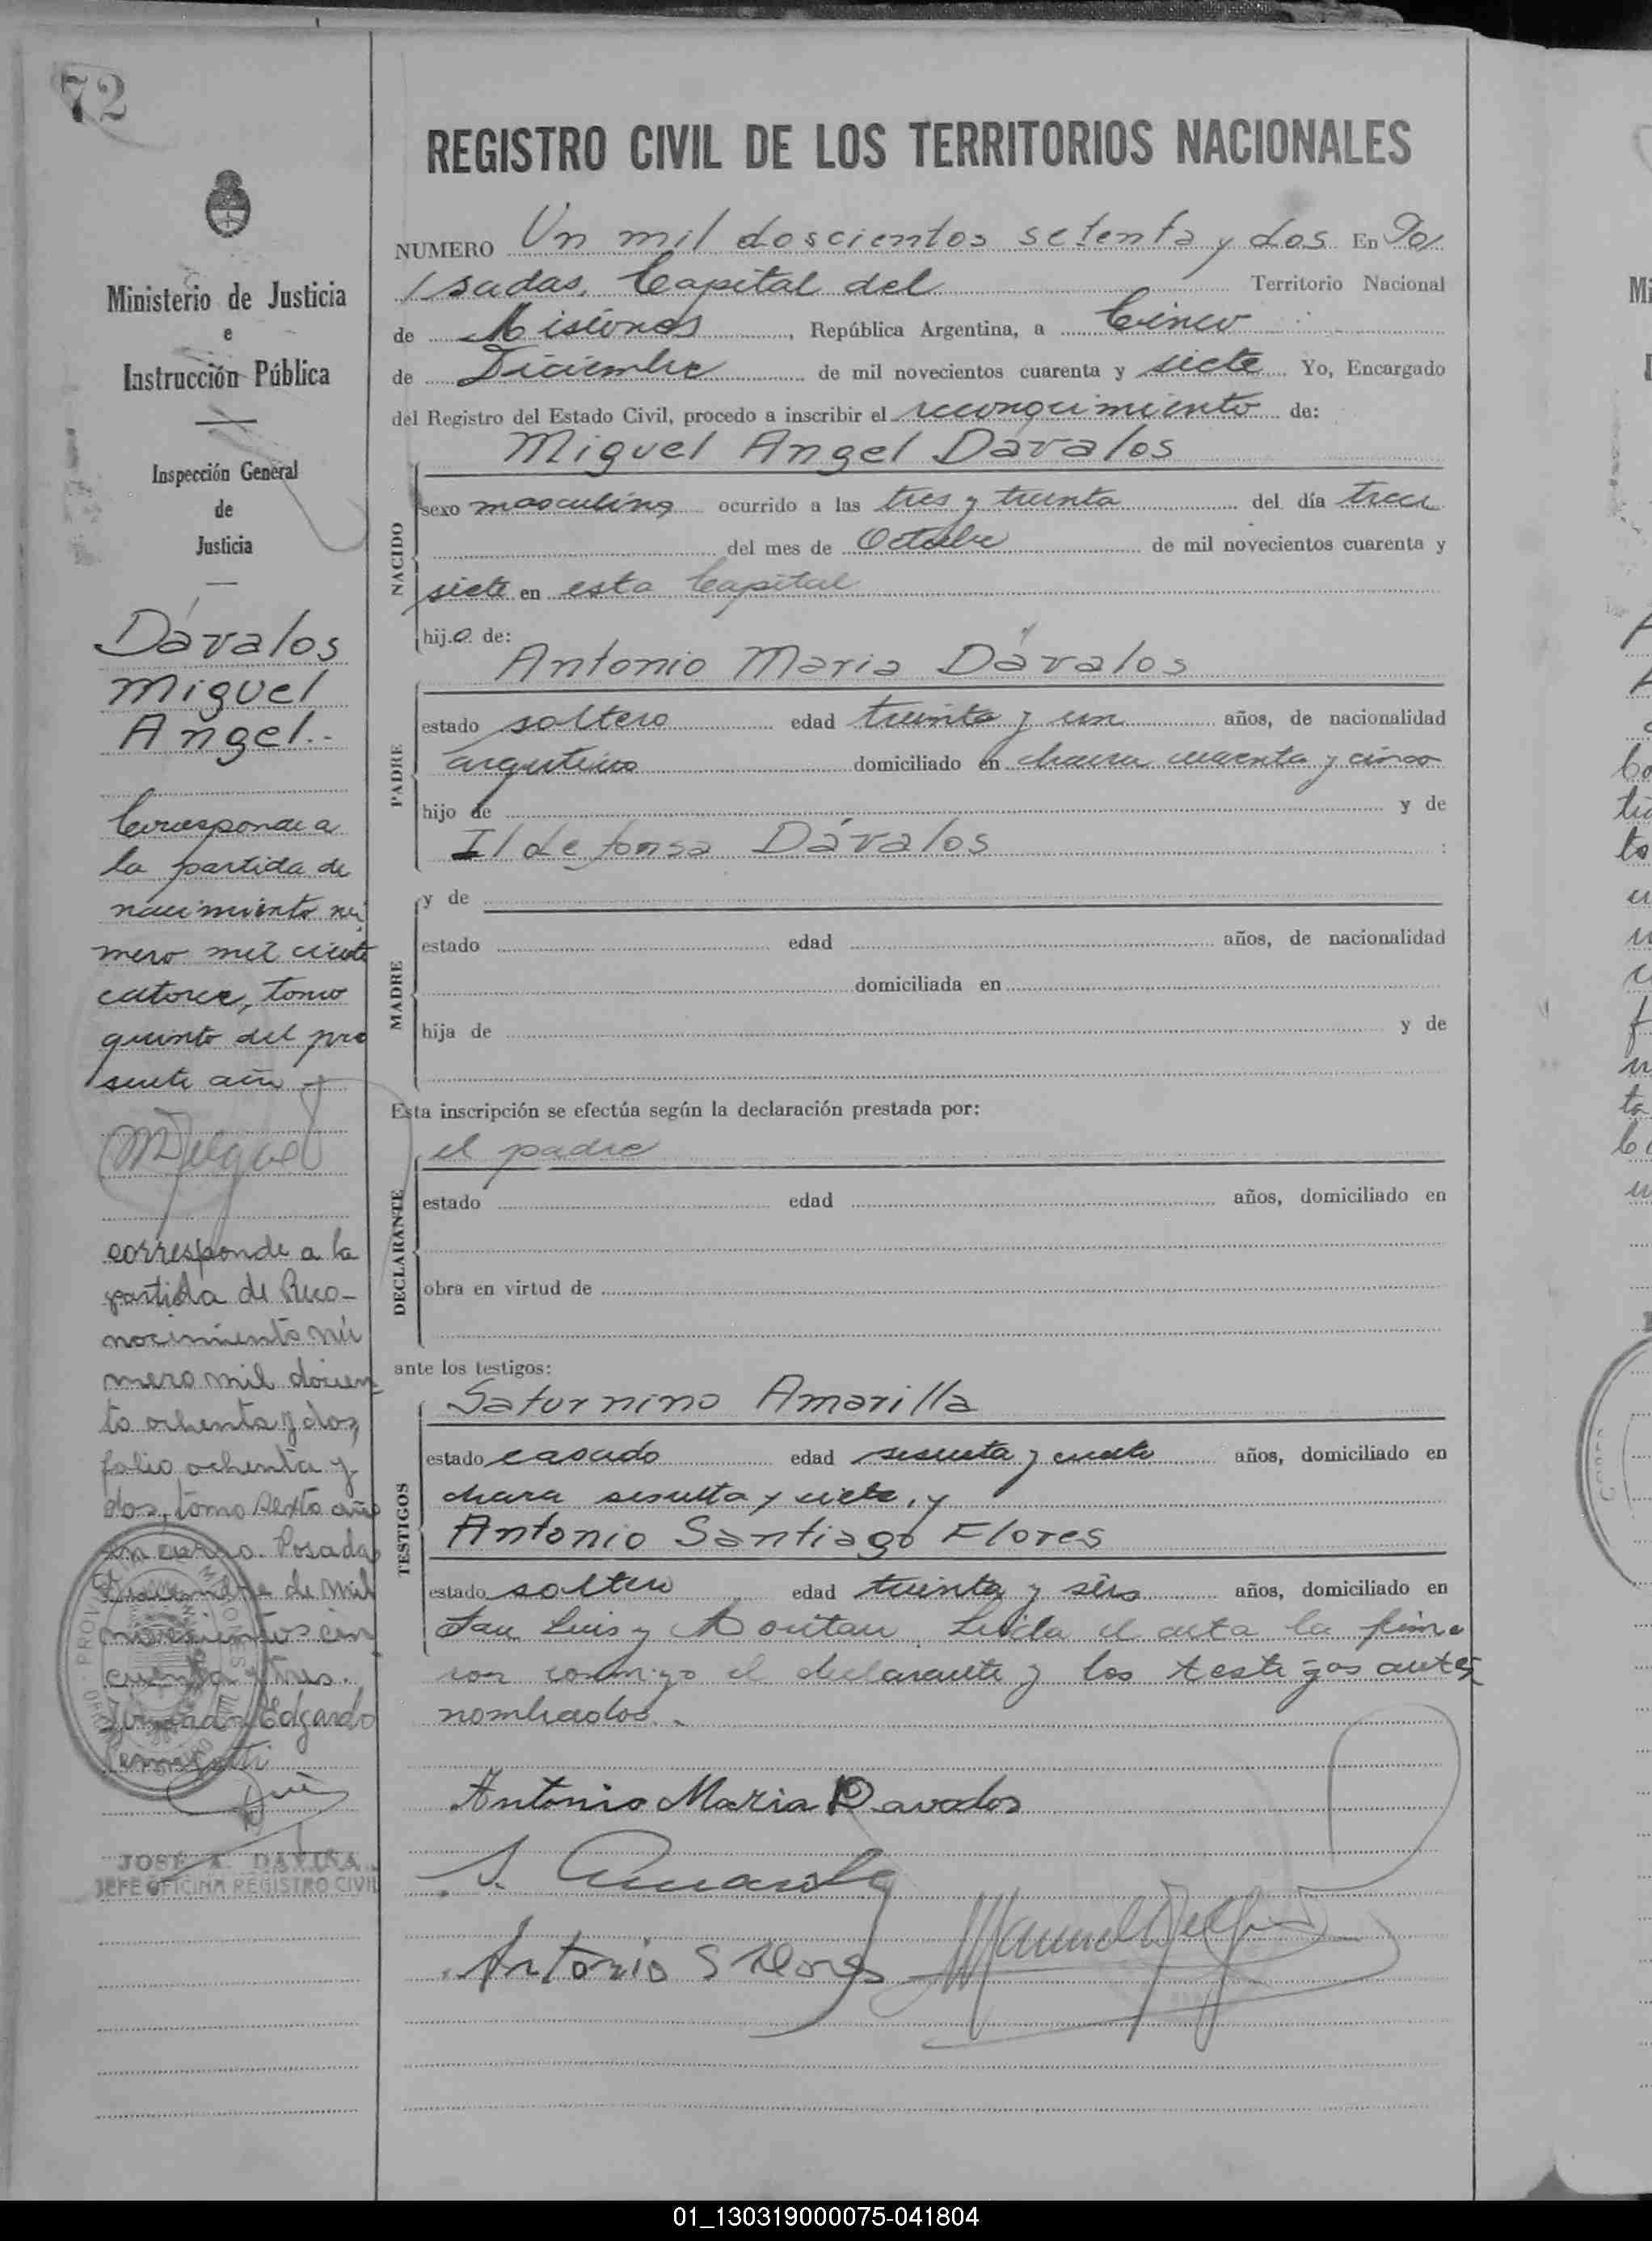 72
Ministerio de Justicia
e
Instrucción Pública
Inspección General
de
Justicia
Dávalos
Miguel
Angel.-
Corresponde a
la partida de
nacimiento nú
mero mil ciento
catorce, tomo
quinto del pre
sente año
MDelgad
corresponde a la
partida de Reco-
nocimiento nú
mero mil docien
to ochenta y dos,
folio ochenta y
dos, tomo sexto año
en curso. Posadas
de mil
novecientos cin
cuenta y tres.
Edgardo
JOSE A. DAVIÑA
JEFE OFICINA REGISTRO CIVIL
REGISTRO CIVIL DE LOS TERRITORIOS NACIONALES
NUMERO Un mil doscientos setenta y dos En Po
sadas, Capital del Territorio Nacional
de Misiones, República Argentina, a Cinco
de Diciembre de mil novecientos cuarenta y siete Yo, Encargado
del Registro del Estado Civil, procedo a inscribir el reconocimiento de:
Miguel Angel Dávalos
NACIDO
sexo masculino ocurrido a las tres y treinta del día trece
del mes de Octubre de mil novecientos cuarenta y
siete en esta Capital
hijo de:
Antonio Maria Dávalos
PADRE
estado soltero edad treinta y un años, de nacionalidad
argentino domiciliado en chacra cuarenta y cinco
hijo de y de
Ildefonsa Dávalos
y de
MADRE
estado edad años, de nacionalidad
domiciliada en
hija de y de
Esta inscripción se efectúa según la declaración prestada por:
el padre
DECLARANTE
estado edad años, domiciliado en
obra en virtud de
ante los testigos:
Saturnino Amarilla
TESTIGOS
estado casado edad sesenta y cuatro años, domiciliado en
chacra sesenta y siete, y
Antonio Santiago Flores
estado soltero edad treinta y séis años, domiciliado en
San Luis y Leida el acta la firma
ron conmigo el declarante y los testigos antes
nombrados.
Antonio Maria Davalos
S. Amarilla
Antonio S Flores
01_130319000075-041804